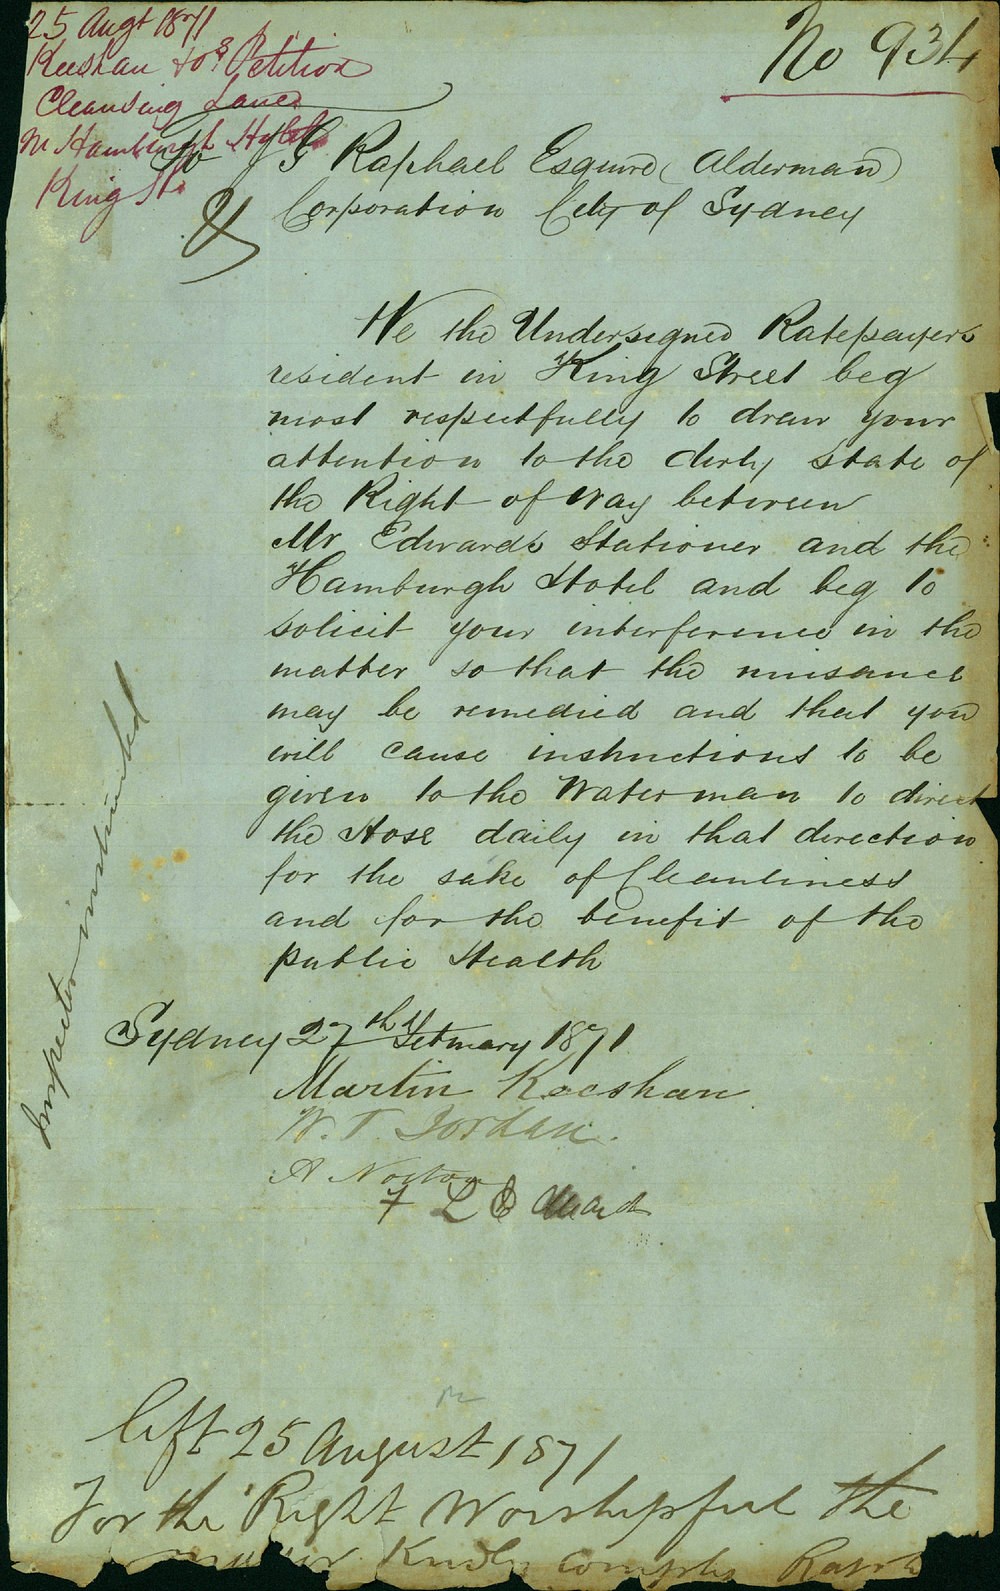 25 Augt 1871
Keeshan & ors Petition
Cleansing Lane
Nr Hamburgh Hotel
King St.
No 934
To J G Raphael Esquire (Alderman)
& Corporation City of Sydney
We the Undersigned Ratepayers
resident in King Street beg
most respectfully to draw your
attention to the dirty state of
the Right of Way between
Mr Edwards Stationer and the
Hamburgh Hotel and beg to
solicit your interference in the
matter so that the nuisance
may be remedied and that you
will cause instructions to be
given to the Waterman to direct
the Hose daily in that direction
for the sake of Cleanliness
and for the benefit of the
public Health
Sydney 27th February 1871
Martin Keeshan
W. T. Jordan.
A Norton
F L Edwards
Inspector instructed
left 25 August 1871
For the Right Worshipful the
Kindly comply